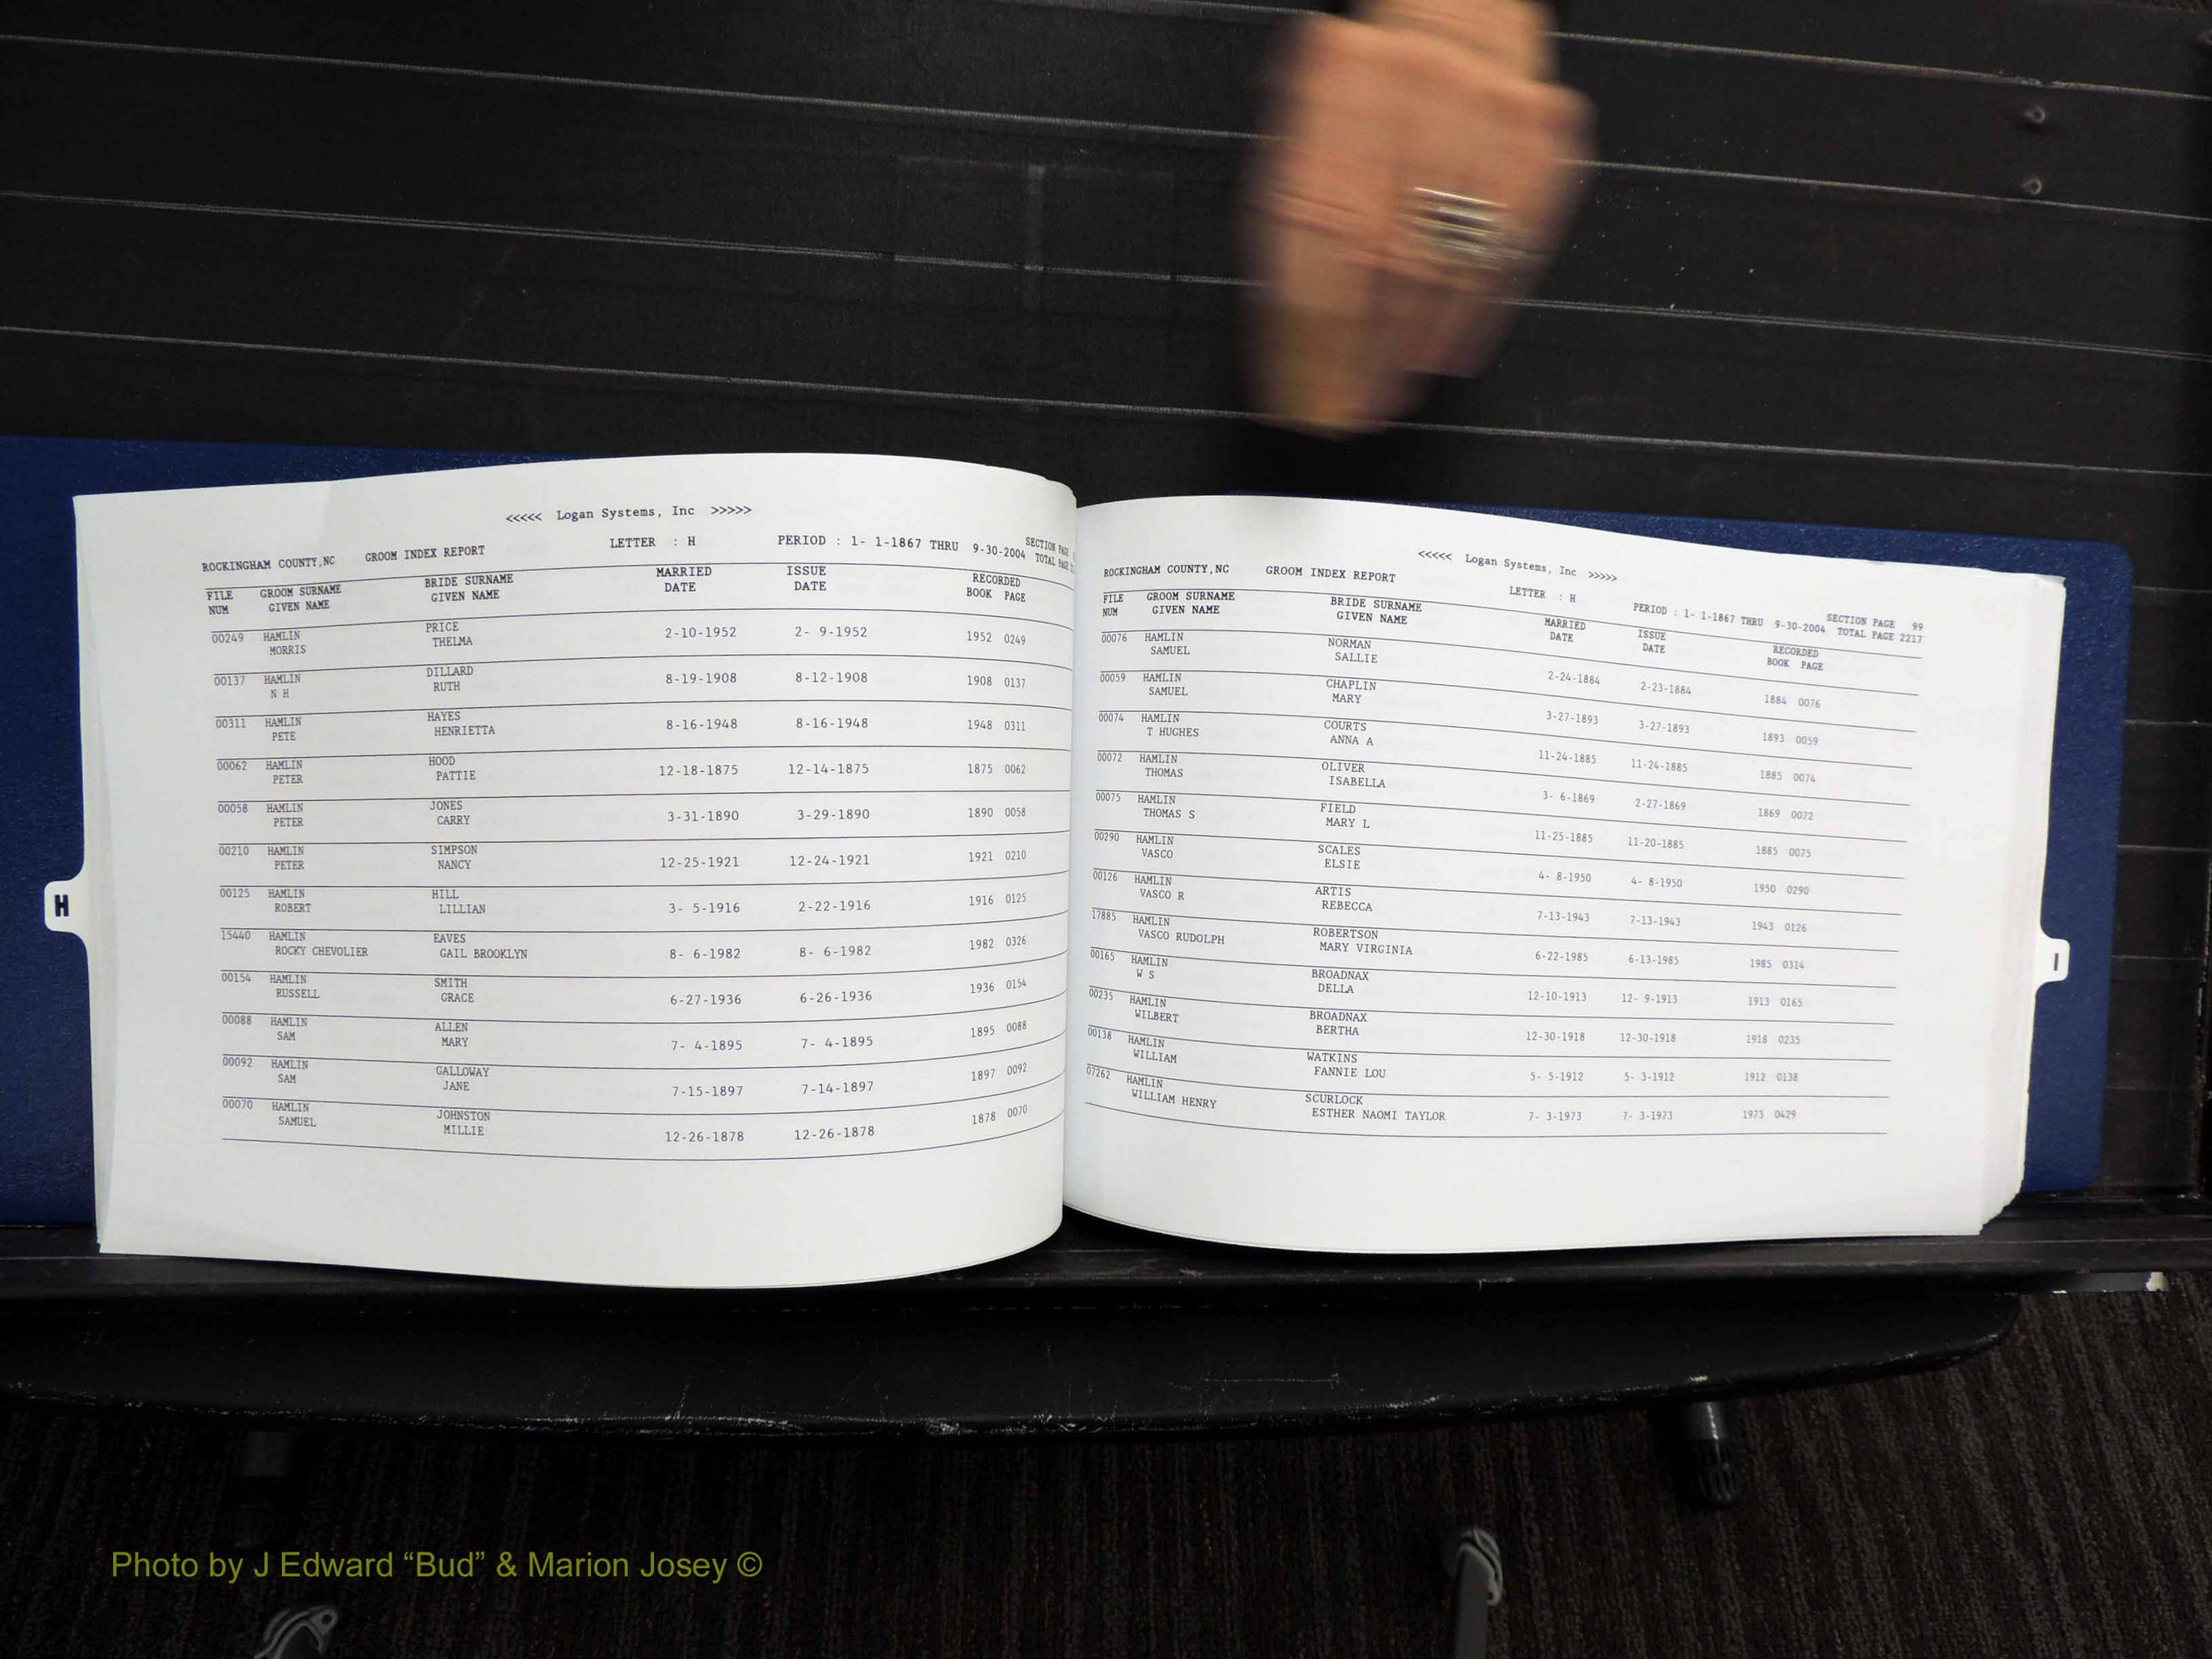 <<<<< Logan Systems, Inc >>>>>
ROCKINGHAM COUNTY,NC GROOM INDEX REPORT LETTER : H PERIOD : 1- 1-1867 THRU 9-30-2004 SECTION PAGE
TOTAL PAGE
FILE GROOM SURNAME BRIDE SURNAME MARRIED ISSUE RECORDED
NUM GIVEN NAME GIVEN NAME DATE DATE BOOK PAGE
00249 HAMLIN PRICE 2-10-1952 2- 9-1952 1952 0249
MORRIS THELMA
00137 HAMLIN DILLARD 8-19-1908 8-12-1908 1908 0137
N H RUTH
00311 HAMLIN HAYES 8-16-1948 8-16-1948 1948 0311
PETE HENRIETTA
00062 HAMLIN HOOD 12-18-1875 12-14-1875 1875 0062
PETER PATTIE
00058 HAMLIN JONES 3-31-1890 3-29-1890 1890 0058
PETER CARRY
00210 HAMLIN SIMPSON 12-25-1921 12-24-1921 1921 0210
PETER NANCY
00125 HAMLIN HILL 3- 5-1916 2-22-1916 1916 0125
ROBERT LILLIAN
15440 HAMLIN EAVES 8- 6-1982 8- 6-1982 1982 0326
ROCKY CHEVOLIER GAIL BROOKLYN
00154 HAMLIN SMITH 6-27-1936 6-26-1936 1936 0154
RUSSELL GRACE
00088 HAMLIN ALLEN 7- 4-1895 7- 4-1895 1895 0088
SAM MARY
00092 HAMLIN GALLOWAY 7-15-1897 7-14-1897 1897 0092
SAM JANE
00070 HAMLIN JOHNSTON 12-26-1878 12-26-1878 1878 0070
SAMUEL MILLIE
H
<<<<< Logan Systems, Inc >>>>>
ROCKINGHAM COUNTY,NC GROOM INDEX REPORT LETTER : H PERIOD : 1- 1-1867 THRU 9-30-2004 SECTION PAGE 99
TOTAL PAGE 2217
FILE GROOM SURNAME BRIDE SURNAME MARRIED ISSUE RECORDED
NUM GIVEN NAME GIVEN NAME DATE DATE BOOK PAGE
00076 HAMLIN NORMAN 2-24-1884 2-23-1884 1884 0076
SAMUEL SALLIE
00059 HAMLIN CHAPLIN 3-27-1893 3-27-1893 1893 0059
SAMUEL MARY
00074 HAMLIN COURTS 11-24-1885 11-24-1885 1885 0074
T HUGHES ANNA A
00072 HAMLIN OLIVER 3- 6-1869 2-27-1869 1869 0072
THOMAS ISABELLA
00075 HAMLIN FIELD 11-25-1885 11-20-1885 1885 0075
THOMAS S MARY L
00290 HAMLIN SCALES 4- 8-1950 4- 8-1950 1950 0290
VASCO ELSIE
00126 HAMLIN ARTIS 7-13-1943 7-13-1943 1943 0126
VASCO R REBECCA
17885 HAMLIN ROBERTSON 6-22-1985 6-13-1985 1985 0314
VASCO RUDOLPH MARY VIRGINIA
00165 HAMLIN BROADNAX 12-10-1913 12- 9-1913 1913 0165
W S DELLA
00235 HAMLIN BROADNAX 12-30-1918 12-30-1918 1918 0235
WILBERT BERTHA
00138 HAMLIN WATKINS 5- 5-1912 5- 3-1912 1912 0138
WILLIAM FANNIE LOU
07262 HAMLIN SCURLOCK 7- 3-1973 7- 3-1973 1973 0429
WILLIAM HENRY ESTHER NAOMI TAYLOR
I
Photo by J Edward “Bud” & Marion Josey ©